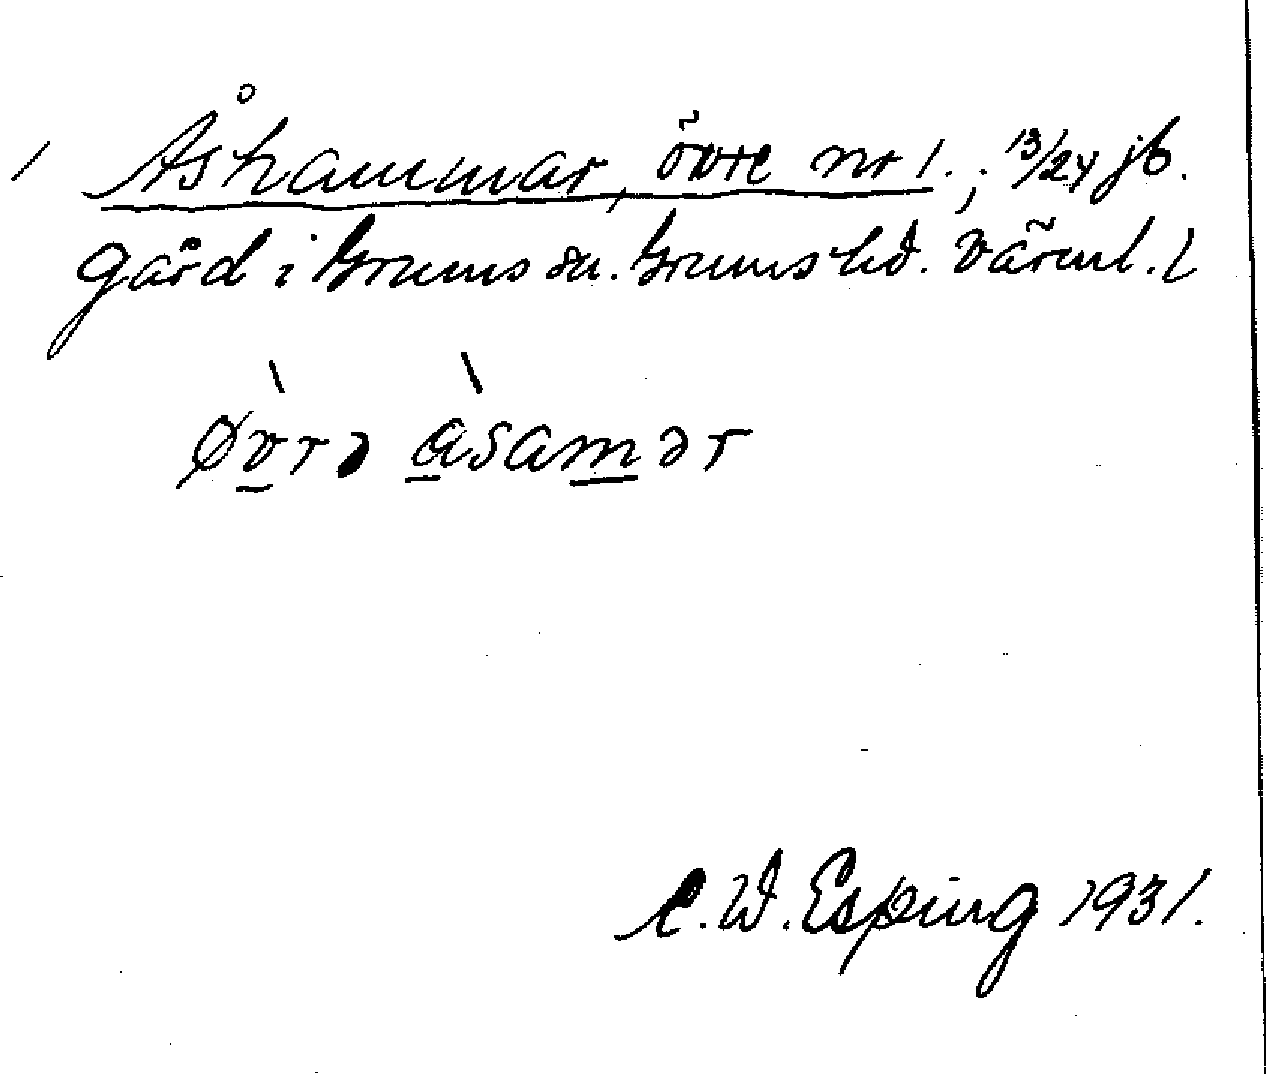 Åshammar, övre nr 1.; 13/24 jb.
gård i Grums sn. Grums hd. Värml. l
øvrə åsamər
C. W. Esping 1931.